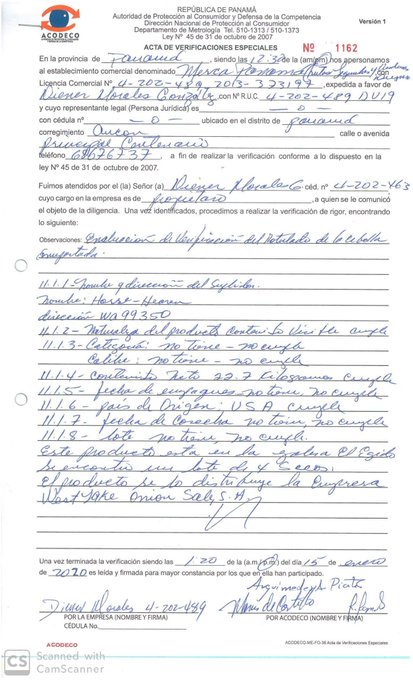 REPÚBLICA DE PANAMÁ
Autoridad de Protección al Consumidor y Defensa de la Competencia
Dirección Nacional de Protección al Consumidor
Departamento de Metrología Tel. 510-1313 / 510-1373
Ley N° 45 de 31 de octubre de 2007
Versión 1
ACODECO
ACTA DE VERIFICACIONES ESPECIALES Nº 1162
En la provincia de Panamá, siendo las 12:30 de la (am/pm) nos apersonamos
al establecimiento comercial denominado Merca Panamá
Licencia Comercial Nº 4-202-489 2013-373197, expedida a favor de
Diener Morales González, con N° R.U.C. 4-202-489 DV19
y cuyo representante legal (Persona Jurídica) es -0-
con cédula nº -0- ubicado en el distrito de Panamá
corregimiento Ancon calle o avenida
Principal Centenario
teléfono 68676737, a fin de realizar la verificación conforme a lo dispuesto en la
ley Nº 45 de 31 de octubre de 2007.
Fuimos atendidos por el (la) Señor (a) Diener Morales G. céd. nº 4-202-463
cuyo cargo en la empresa es de propietario, a quien se le comunicó
el objeto de la diligencia. Una vez identificados, procedimos a realizar la verificación de rigor, encontrando
lo siguiente:
Observaciones: Evaluación de Verificación del Rotulado de la cebolla
importada.
11.1.1- Nombre y dirección del
Nombre:
dirección WA 99350
11.1.2- Naturaleza del producto contenido Visible cumple
11.1.3- Categoria: no tiene - no cumple
Calibre: no tiene - no cumple
11.1.4- contenido Neto 22.7 Kilogramos cumple
11.1.5- fecha de empaque no tiene, no cumple
11.1.6- país de Origen: USA cumple
11.1.7- fecha de Cosecha no tiene, no cumple
11.1.8- lote no tiene, no cumple.
Este producto esta en la galera El Ejido
se encontro un lote de 4 sacos.
El producto se lo distribuye la Empresa
West Lake Onion Sales, S.A.
Una vez terminada la verificación siendo las 1:20 de la (a.m./p.m.) del día 15 de enero
de 2020 es leída y firmada para mayor constancia por los que en ella han participado.
Diener Morales 4-202-489
POR LA EMPRESA (NOMBRE Y FIRMA)
CÉDULA No.
POR LA EMPRESA (NOMBRE Y FIRMA)
ACODECO
ACODECO-ME-FO-36 Acta de Verificaciones Especiales
CS Scanned with
CamScanner